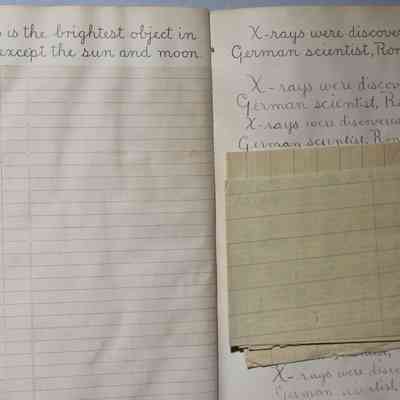 is the brightest object in
except the sun and moon.
X-rays were discover
German scientist, Ron
X-rays were discov
German scientist, R
X-rays were discovere
German scientist, Ron
X-rays were disco
German scientist,